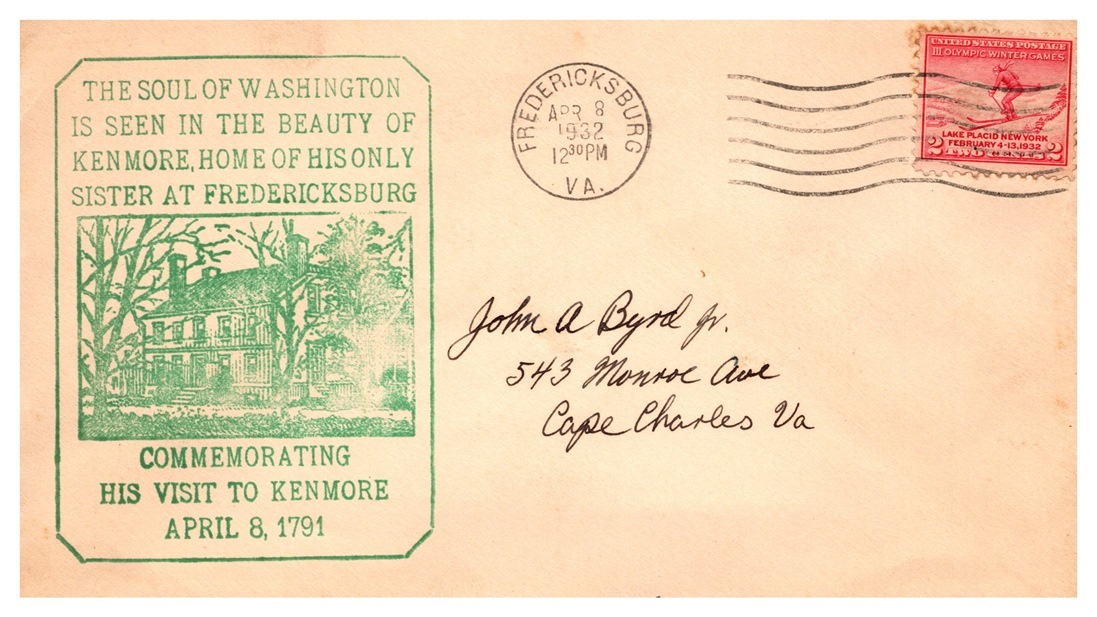 THE SOUL OF WASHINGTON
IS SEEN IN THE BEAUTY OF
KENMORE, HOME OF HIS ONLY
SISTER AT FREDERICKSBURG
COMMEMORATING
HIS VISIT TO KENMORE
APRIL 8, 1791
FREDERICKSBURG
APR 8
1932
12 30 PM
VA.
UNITED STATES POSTAGE
III OLYMPIC WINTER GAMES
LAKE PLACID NEW YORK
FEBRUARY 4-13, 1932
2 TWO CENTS 2
John A Byrd Jr.
543 Monroe Ave
Cape Charles Va